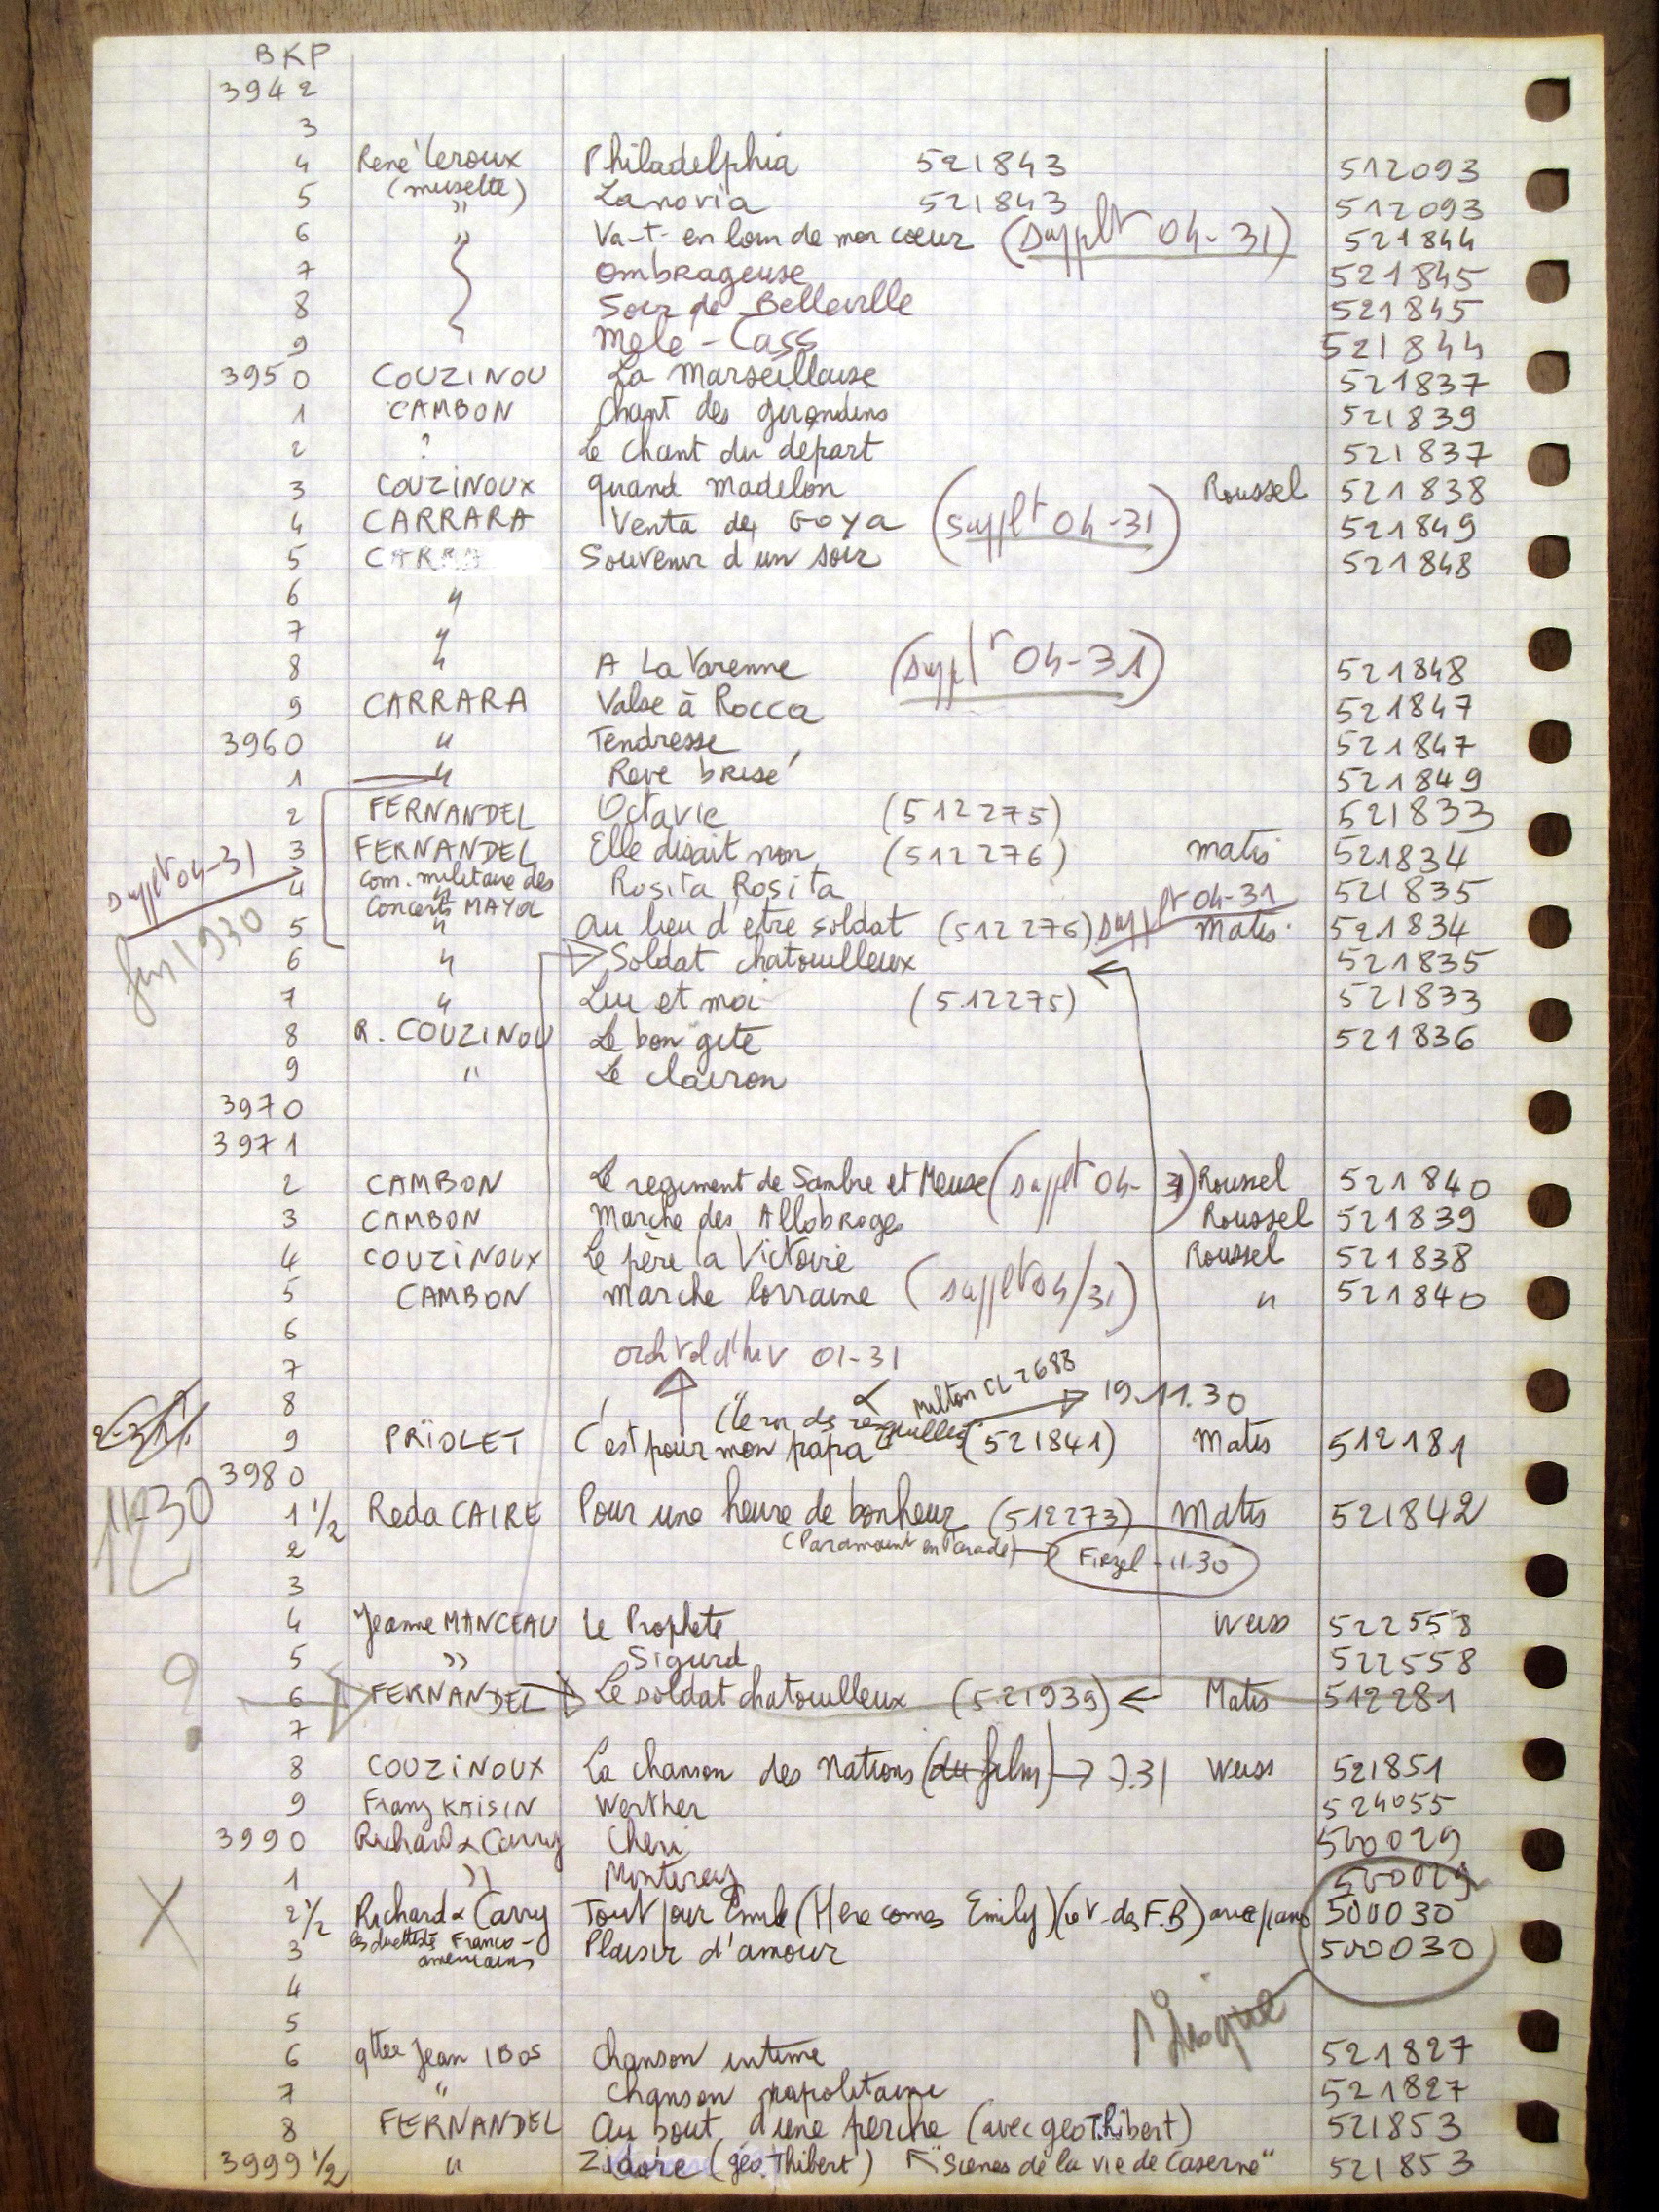 BKP
3942
3
4 René Leroux Philadelphia 521843 512093
(musette)
5 " Lanovia 521843 512093
6 " Va-t-en loin de mon cœur (supplt 04-31) 521844
7 Ombrageuse 521845
8 Soir de Belleville 521845
9 Mele-Cass 521844
3950 COUZINOU La Marseillaise 521837
1 CAMBON Chant des girondins 521839
2 ? Le chant du depart 521837
3 COUZINOUX quand madelon Roussel 521838
4 CARRARA Venta de Goya (supplt 04-31) 521849
5 CARRA Souvenir d'un soir 521848
6 "
7 "
8 " A La Varenne (supplt 04-31) 521848
9 CARRARA Valse à Rocca 521847
3960 " Tendresse 521847
1 " Reve brisé 521849
2 FERNANDEL Octavie (512275) 521833
supplt 04-31
3 FERNANDEL Elle disait non (512276) matis 521834
4 Com. militaire des Rosita Rosita 521835
Concerts MAYOL
5 " au lieu d'etre soldat (512276) supplt 04-31 Matis 521834
1930
6 " Soldat chatouilleux 521835
7 " Lui et moi (512275) 521833
8 R. COUZINOU Le bon gite 521836
9 " Le clairon
3970
3971
2 CAMBON Le regiment de Sambre et Meuse (supplt 04-31) Roussel 521840
3 CAMBON Marche des Allobroges Roussel 521839
4 COUZINOUX Le père la Victoire Roussel 521838
5 CAMBON Marche lorraine (supplt 04/31) " 521840
6
7 orch Vel d'hiv 01-31
8 Milton CL 2688 19.11.30
9 PRIOLET C'est pour mon papa (Le roi des resquilleurs) (521841) Matis 512181
3980
11-30
1 1/2 Reda CAIRE Pour une heure de bonheur (512273) Matis 521842
2 (Paramount en Parade) Firzel - 11.30
3
4 Jeanne MANCEAU Le Prophete Weiss 522558
5 " Sigurd 522558
? 6 FERNANDEL Le soldat chatouilleux (521939) Matis 512281
7
8 COUZINOUX La chanson des Nations (du film) 7.31 Weiss 521851
9 Franz KAISIN Werther 524055
3990 Richard & Carry Cheri 500029
1 " Monterey 500029
X 2 1/2 Richard & Carry Tout pour Emile (Here comes Emily) (rev. des F.B) avec piano 500030
3 les duettistes Franco- Plaisir d'amour 500030
americains
4
5
6 qttee Jean IBOS Chanson intime 521827
7 " Chanson napolitaine 521827
8 FERNANDEL Au bout d'une perche (avec géo Thibert) 521853
3999 1/2 " Zidore (géo. Thibert) "Scenes de la vie de Caserne" 521853